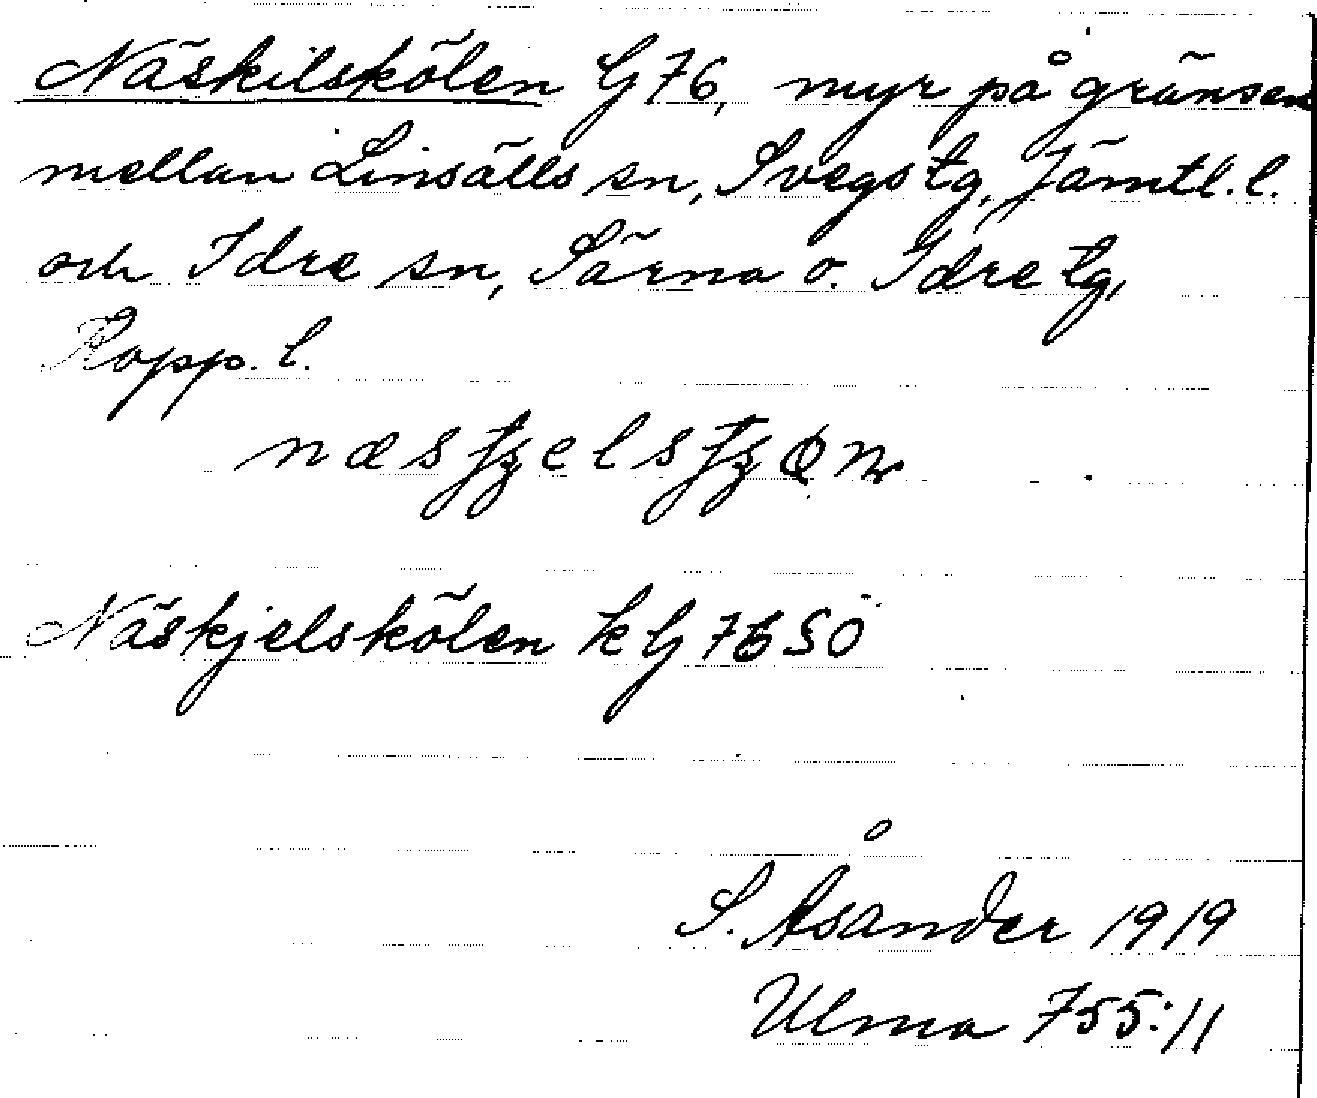 Näskilskölen G76, myr på gränsen
mellan Linsälls sn, Svegs tg, Jämtl. l.
och Idre sn, Särna o. Idre tg,
Kopp. l.
Näskjelskölen k G 76 SÖ
S. Åsander 1919
Ulma 755:11